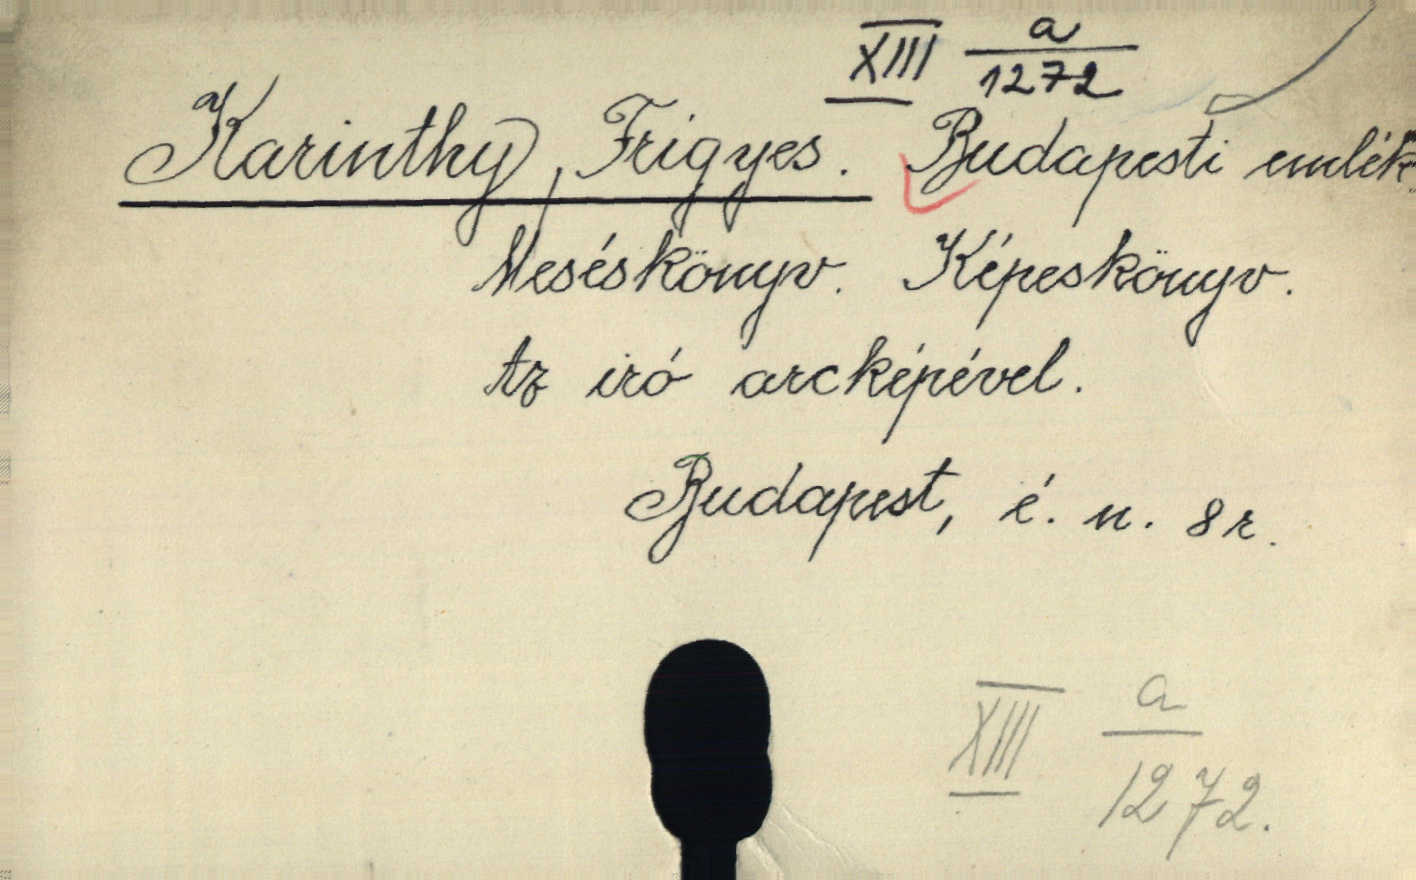 XIII a/1272
Karinthy, Frigyes. Budapesti emlék
Meséskönyv. Képeskönyv.
Az iró arcképével.
Budapest, é. n. 8r.
XIII a/1272.